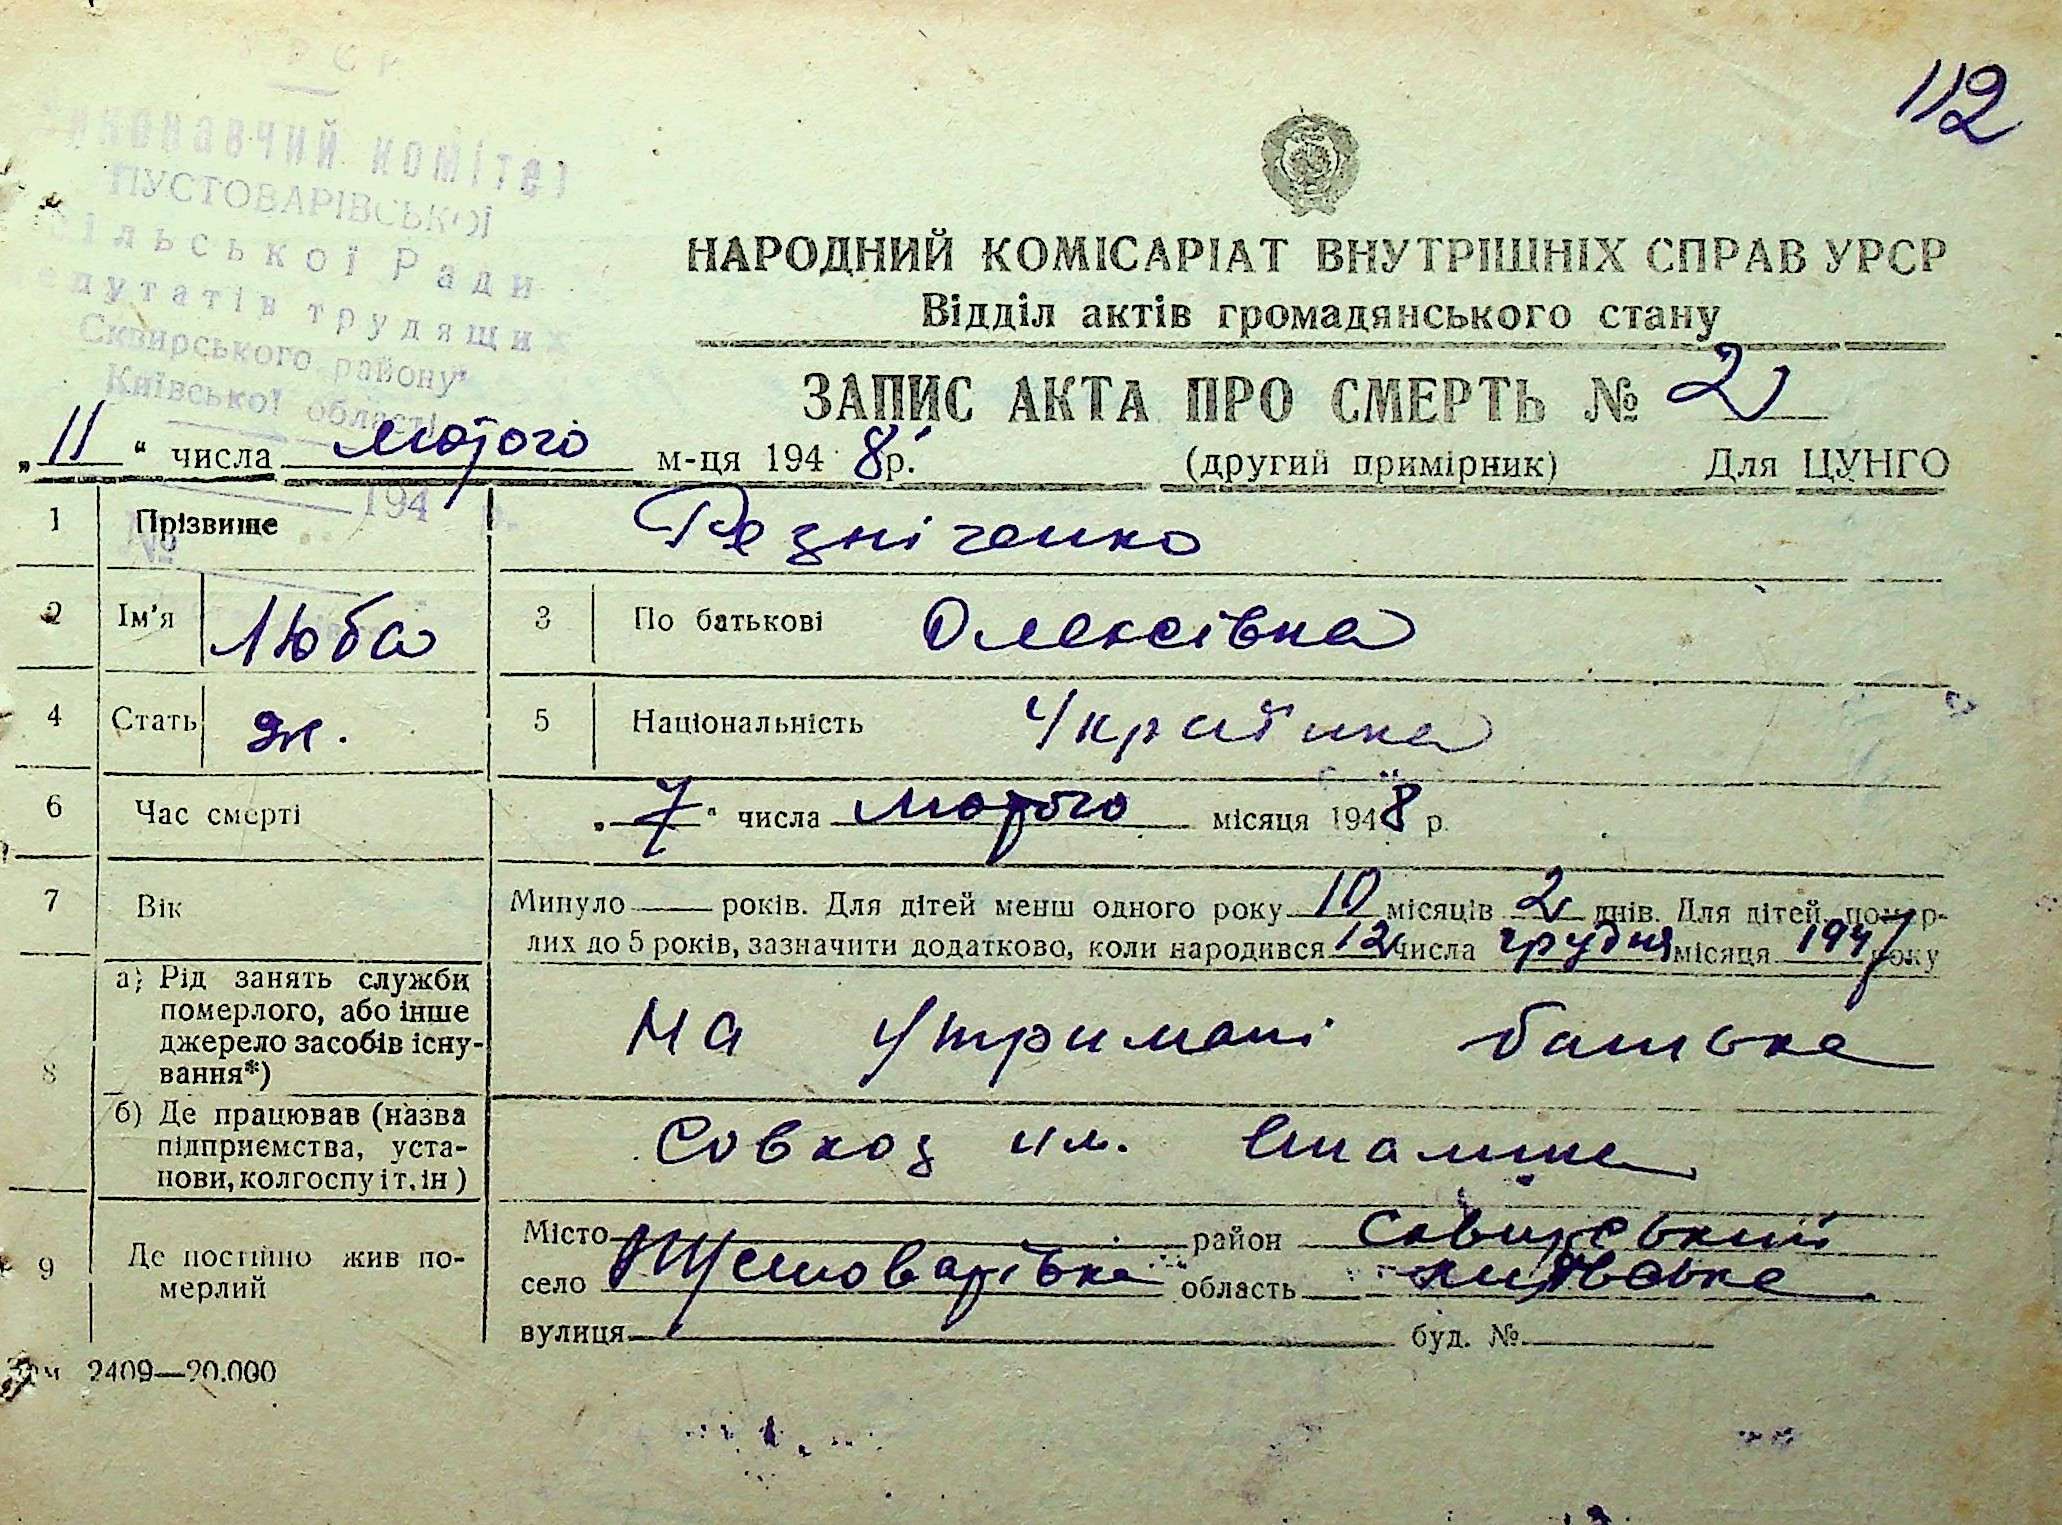 112
УРСР
Виконавчий комітет
ПУСТОВАРІВСЬКОЇ
сільської Ради
депутатів трудящих
Сквирського району
Київської області
194 р.
№
НАРОДНИЙ КОМІСАРІАТ ВНУТРІШНІХ СПРАВ УРСР
Відділ актів громадянського стану
ЗАПИС АКТА ПРО СМЕРТЬ № 2
„11“ числа лютого м-ця 1948 р. (другий примірник) Для ЦУНГО
1 Прізвище Резніченко
2 Ім'я Люба 3 По батькові Олексівна
4 Стать ж. 5 Національність Українка
6 Час смерті „7“ числа лютого місяця 1948 р.
7 Вік Минуло — років. Для дітей менш одного року 10 місяців 2 днів. Для дітей, помер-
лих до 5 років, зазначити додатково, коли народився 12 числа грудня місяця 1947 року
8 а) Рід занять служби померлого, або інше джерело засобів існу-вання*) На утримані батька
б) Де працював (назва підприємства, уста-нови, колгоспу і т. ін) Совхоз им. Сталина
9 Де постійно жив по-мерлий Місто район Сквирський
село область Київська
вулиця буд. №
Зам 2409—20.000